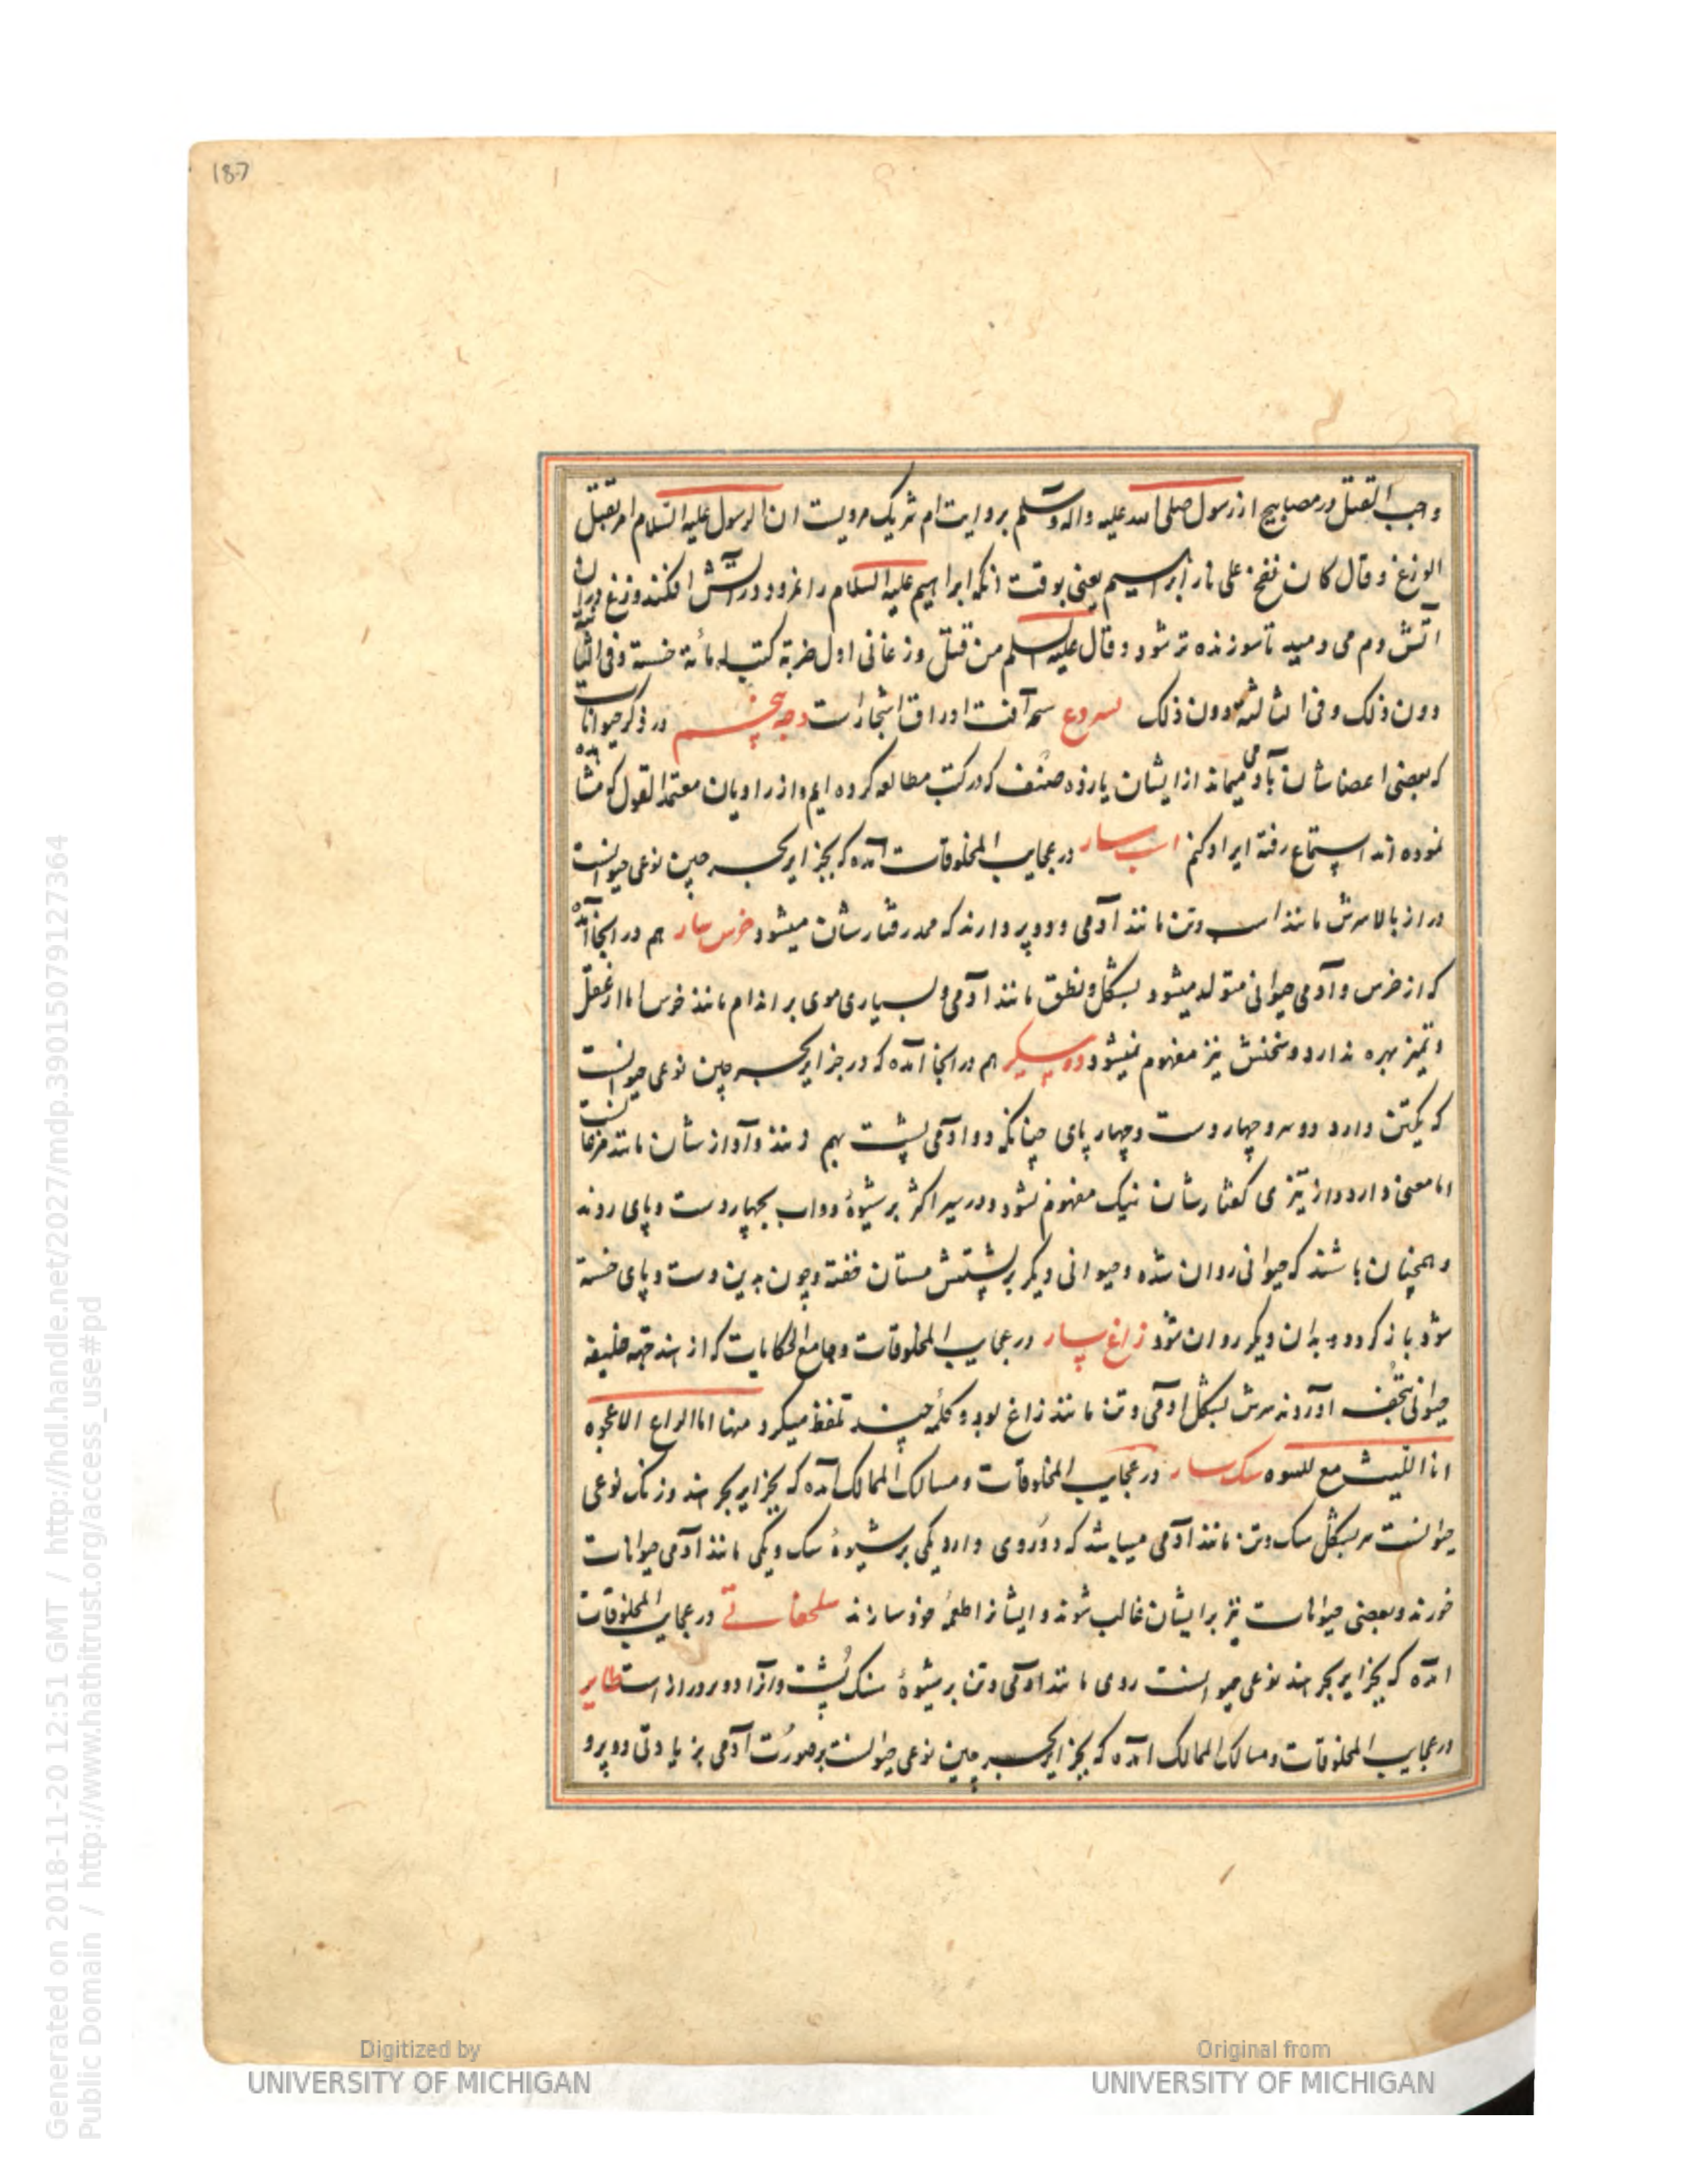 187
واجب القتل در مصابیح از رسول صلی الله علیه واله وسلم بروایت ام شریک مرویست ان الرسول علیه السلام امر بقتل
الوزغ وقال کان نفخ علی نار ابراهیم یعنی بوقت انکه ابراهیم علیه السلام را نمرود در آتش افکند وزغ دران
اتش دم می دمید تا سوزنده تر شود وقال علیه السلم من قتل وزغا فی اول ضربة کتب له مائة حسنة وفی الثانیه
دون ذلک وفی الثالثه دون ذلک یسروع سم آفت اوراق اشجار است وجه پنجم در ذکر حیوانات
که بعضی اعضاشان بآدمی میماند از ایشان یازده صنف که در کتب مطالعه کرده ایم واز راویان معتمد القول که مشاهده
نموده اند استماع رفته ایراد کنم اسب سار در عجایب المخلوقات آمده که بجزایر بحر چین نوعی حیوانست
دراز بالا سرش مانند اسب وتن مانند آدمی ودو پر دارند که ممد رفتارشان میشود خرس سار هم در انجا آمده
که از خرس وآدمی حیوانی متولد میشود بشکل ونطق مانند آدمی وبسیاری موی بر اندام مانند خرس اما از عقل
وتمیز بهره ندارد وسخنش نیز مفهوم نمیشود دو پیکر هم در انجا آمده که در جزایر بحر چین نوعی حیوانست
که یکتن دارد دو سر وچهار دست وچهار پای چنانکه دو ادمی پشت بهم نهند وآواز شان مانند مرغانست
اما معنی دارد واز تیزی گفتارشان نیک مفهوم نشود ودر سیر اکثر بر شیوهٔ دواب بچهار دست وپای روند
وهمچنان باشند که حیوانی روان شده وحیوانی دیگر بر پشتش ستان خفته وچون بدین دست وپای خسته
شود باز گردد وبدان دیگر روان شود زاغ سار در عجایب المخلوقات وجامع الحکایات که از هند جهة خلیفه
حیوانی بتحفه آوردند سرش بشکل ادمی وتن مانند زاغ بود وکلمهٔ چند تلفظ میکرد منها انا الزاغ الاعجوه
انا اللیث مع للسوه سک سار در عجایب المخلوقات ومسالک الممالک آمده که بجزایر بحر هند وزنک نوعی
حیوانست سر بشکل سک وتن مانند آدمی میباشد که دو روی دارد یکی بر شیوهٔ سک ویکی مانند آدمی حیوانات
خورند وبعضی حیوانات نیز بر ایشان غالب شوند وایشانرا طعمهٔ خود سازند سلحفاتی در عجایب المخلوقات
امده که بجزایر بحر هند نوعی حیوانست روی مانند ادمی وتن بر شیوهٔ سنک پشت وآنرا دو سر دراز است طایر
در عجایب المخلوقات ومسالک الممالک امده که بجزایر بحر چین نوعی حیوانست بر صورت آدمی بزیادتی دو پر و
Digitized by
UNIVERSITY OF MICHIGAN
Original from
UNIVERSITY OF MICHIGAN
Generated on 2018-11-20 12:51 GMT / http://hdl.handle.net/2027/mdp.39015079127364
Public Domain / http://www.hathitrust.org/access_use#pd